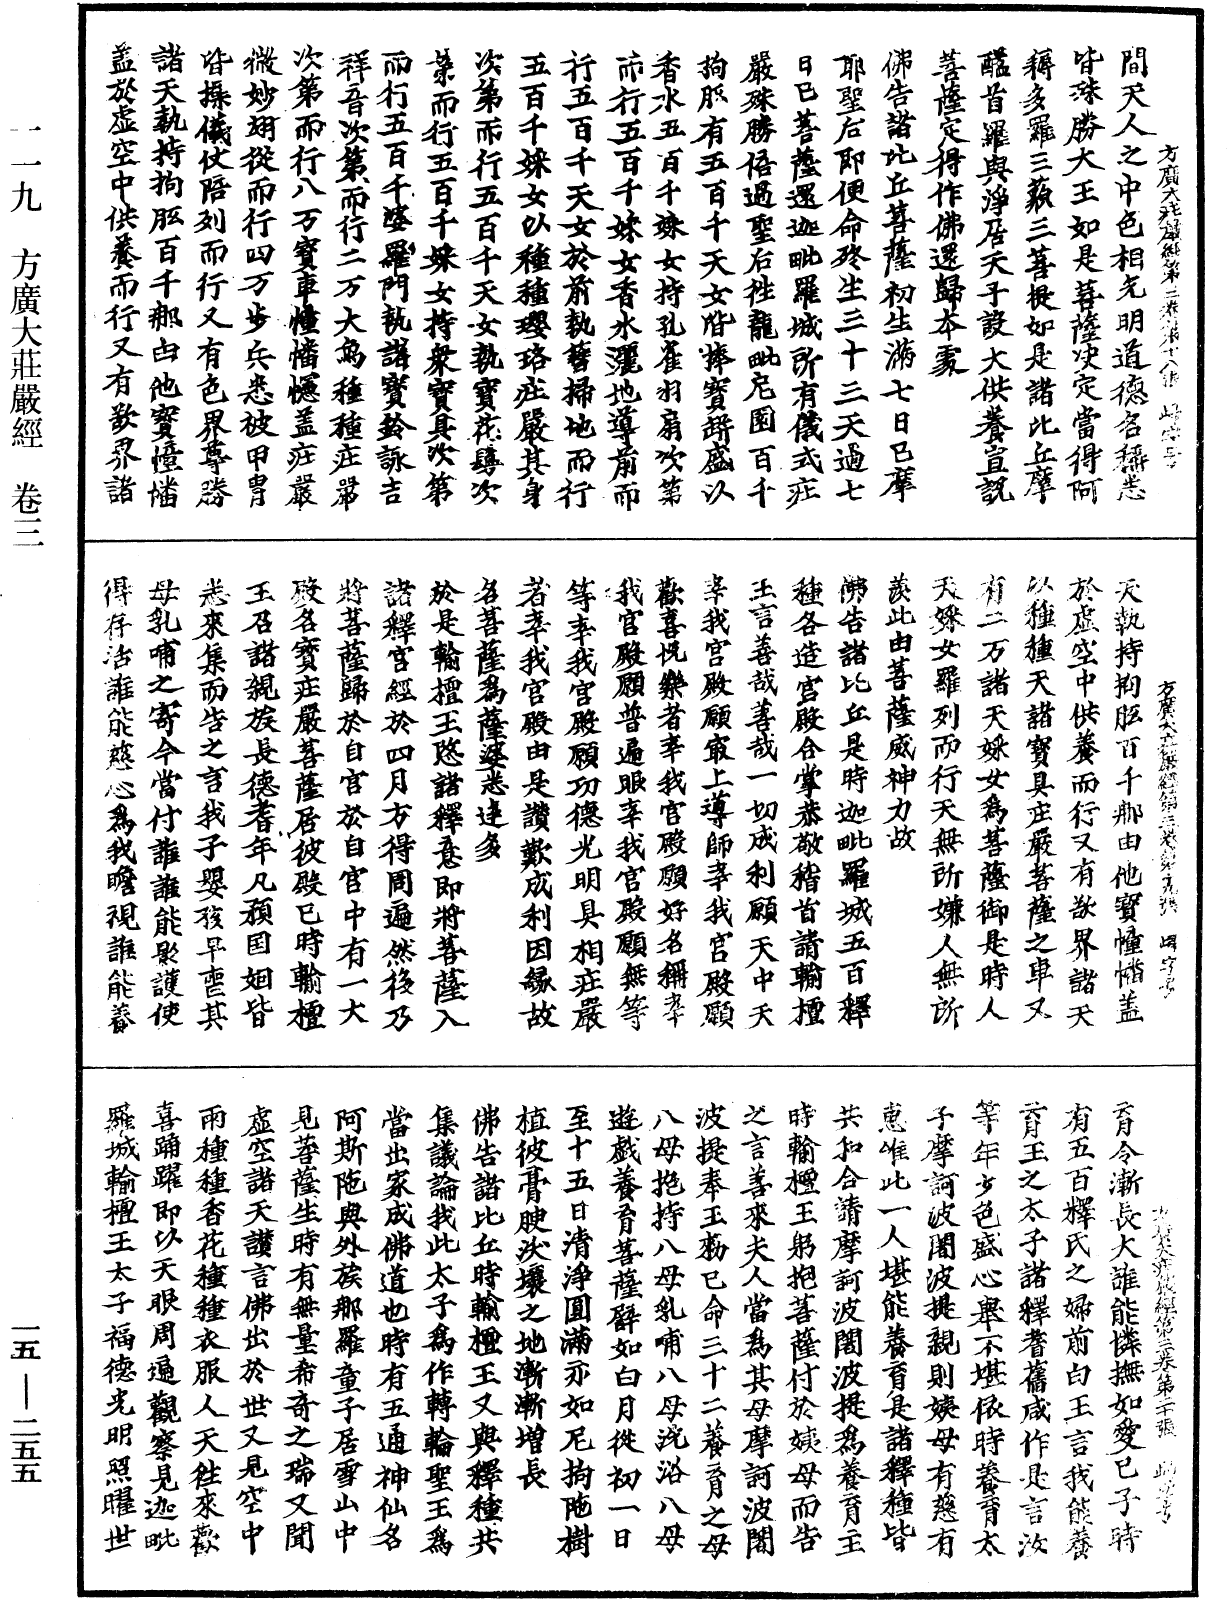 一一九　方廣大莊嚴經　卷三
一五—二五五
間天人之中色相光明道德名稱悉
皆殊勝大王如是菩薩決定當得阿
耨多羅三藐三菩提如是諸比丘摩
醯首羅與淨居天子設大供養宣說
菩薩定得作佛還歸本處
佛告諸比丘菩薩初生滿七日已摩
耶聖后即便命終生三十三天過七
日已菩薩還迦毗羅城所有儀式莊
嚴殊勝倍過聖后往龍毗尼園百千
拘胝有五百千天女皆捧寶缾盛以
香水五百千婇女持孔雀羽扇次第
而行五百千婇女香水灑地導前而
行五百千天女於前執篲掃地而行
五百千婇女以種種瓔珞莊嚴其身
次第而行五百千天女執寶花鬘次
第而行五百千婇女持衆寶具次第
而行五百千婆羅門執諸寶鈴詠吉
祥音次第而行二万大象種種莊嚴
次第而行八万寶車幢幡幰蓋莊嚴
微妙翊從而行四万步兵悉被甲冑
皆操儀仗陪列而行又有色界尊勝
諸天執持拘胝百千那由他寶幢幡
蓋於虛空中供養而行又有欲界諸
天執持拘胝百千那由他寶幢幡蓋
於虛空中供養而行又有欲界諸天
以種種天諸寶具莊嚴菩薩之車又
有二万諸天婇女爲菩薩御是時人
天婇女羅列而行天無所嫌人無所
羨此由菩薩威神力故
佛告諸比丘是時迦毗羅城五百釋
種各造宮殿合掌恭敬稽首請輸檀
王言善哉善哉一切成利願天中天
幸我宮殿願最上導師幸我宮殿願
歡喜悅樂者幸我宮殿願好名稱幸
我宮殿願普遍眼幸我宮殿願無等
等幸我宮殿願功德光明具相莊嚴
者幸我宮殿由是讚歎成利因緣故
名菩薩爲薩婆悉達多
於是輸檀王愍諸釋意即將菩薩入
諸釋宮經於四月方得周遍然後乃
將菩薩歸於自宮於自宮中有一大
殿名寶莊嚴菩薩居彼殿已時輸檀
王召諸親族長德耆年凡預国姻皆
悉來集而告之言我子嬰孩早喪其
母乳哺之寄今當付誰誰能影護使
得存活誰能慈心爲我瞻視誰能養
育令漸長大誰能憐撫如愛己子時
有五百釋氏之婦前白王言我能養
育王之太子諸釋耆舊咸作是言汝
等年少色盛心舉不堪依時養育太
子摩訶波闍波提親則姨母有慈有
惠唯此一人堪能養育是諸釋種皆
共和合請摩訶波闍波提爲養育主
時輸檀王躬抱菩薩付於姨母而告
之言善來夫人當爲其母摩訶波闍
波提奉王勑已命三十二養育之母
八母抱持八母乳哺八母洗浴八母
遊戲養育菩薩譬如白月從初一日
至十五日清淨圓滿亦如尼拘陁樹
植彼膏腴沃壤之地漸漸增長
佛告諸比丘時輸檀王又與釋種共
集議論我此太子爲作轉輪聖王爲
當出家成佛道也時有五通神仙名
阿斯陁與外族那羅童子居雪山中
見菩薩生時有無量希奇之瑞又聞
虛空諸天讚言佛出於世又見空中
雨種種香花種種衣服人天往來歡
喜踊躍即以天眼周遍觀察見迦毗
羅城輸檀王太子福德光明照曜世